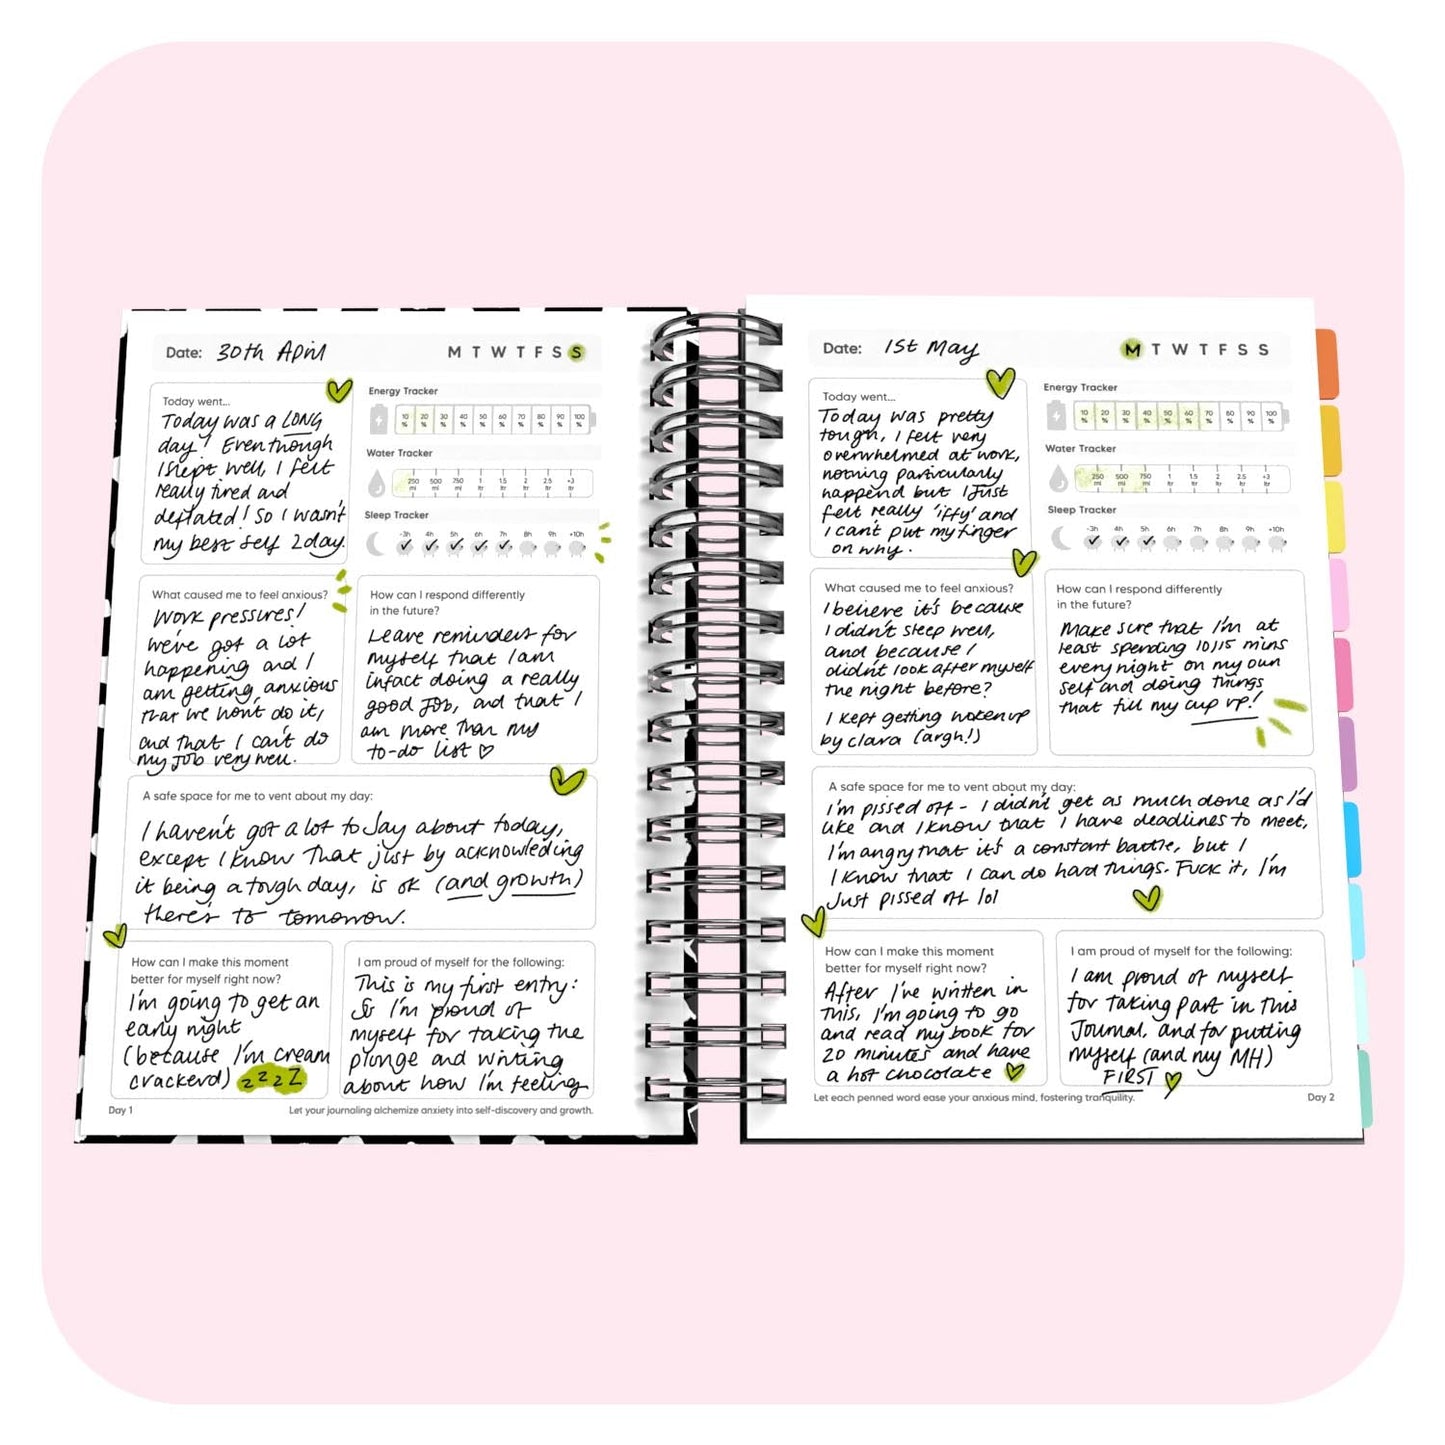 Date: 30th April
M T W T F S S
Today went...
Today was a LONG
day! Even though
I slept well, I felt
really tired and
deflated! So I wasn't
my best self 2day.
Energy Tracker
10 % 20 % 30 % 40 % 50 % 60 % 70 % 80 % 90 % 100 %
Water Tracker
250 ml 500 ml 750 ml 1 ltr 1.5 ltr 2 ltr 2.5 ltr +3 ltr
Sleep Tracker
-3h 4h 5h 6h 7h 8h 9h +10h
What caused me to feel anxious?
Work pressures!
We've got a lot
happening and I
am getting anxious
that we won't do it,
and that I can't do
my job very well.
How can I respond differently
in the future?
Leave reminders for
myself that I am
infact doing a really
good job, and that I
am more than my
to-do list ♡
A safe space for me to vent about my day:
I haven't got a lot to say about today,
except I know that just by acknowleding
it being a tough day, is ok (and growth)
there's to tomorrow.
How can I make this moment
better for myself right now?
I'm going to get an
early night
(because I'm cream
crackerd) z z z Z
I am proud of myself for the following:
This is my first entry:
& I'm proud of
myself for taking the
plunge and writing
about how I'm feeling
Day 1
Let your journaling alchemize anxiety into self-discovery and growth.
Date: 1st May
M T W T F S S
Today went...
Today was pretty
tough, I felt very
overwhelmed at work,
nothing particularly
happend but I just
felt really 'iffy' and
I can't put my finger
on why.
Energy Tracker
10 % 20 % 30 % 40 % 50 % 60 % 70 % 80 % 90 % 100 %
Water Tracker
250 ml 500 ml 750 ml 1 ltr 1.5 ltr 2 ltr 2.5 ltr +3 ltr
Sleep Tracker
-3h 4h 5h 6h 7h 8h 9h +10h
What caused me to feel anxious?
I believe it's because
I didn't sleep well,
and because I
didn't look after myself
the night before?
I kept getting woken up
by clara (argh!)
How can I respond differently
in the future?
Make sure that I'm at
least spending 10/15 mins
every night on my own
self and doing things
that fill my cup up!
A safe space for me to vent about my day:
I'm pissed off - I didn't get as much done as I'd
like and I know that I have deadlines to meet,
I'm angry that it's a constant battle, but I
I know that I can do hard things. Fuck it, I'm
just pissed off lol
How can I make this moment
better for myself right now?
After I've written in
this, I'm going to go
and read my book for
20 minutes and have
a hot chocolate
I am proud of myself for the following:
I am proud of myself
for taking part in this
Journal, and for putting
myself (and my MH)
FIRST
Let each penned word ease your anxious mind, fostering tranquility.
Day 2